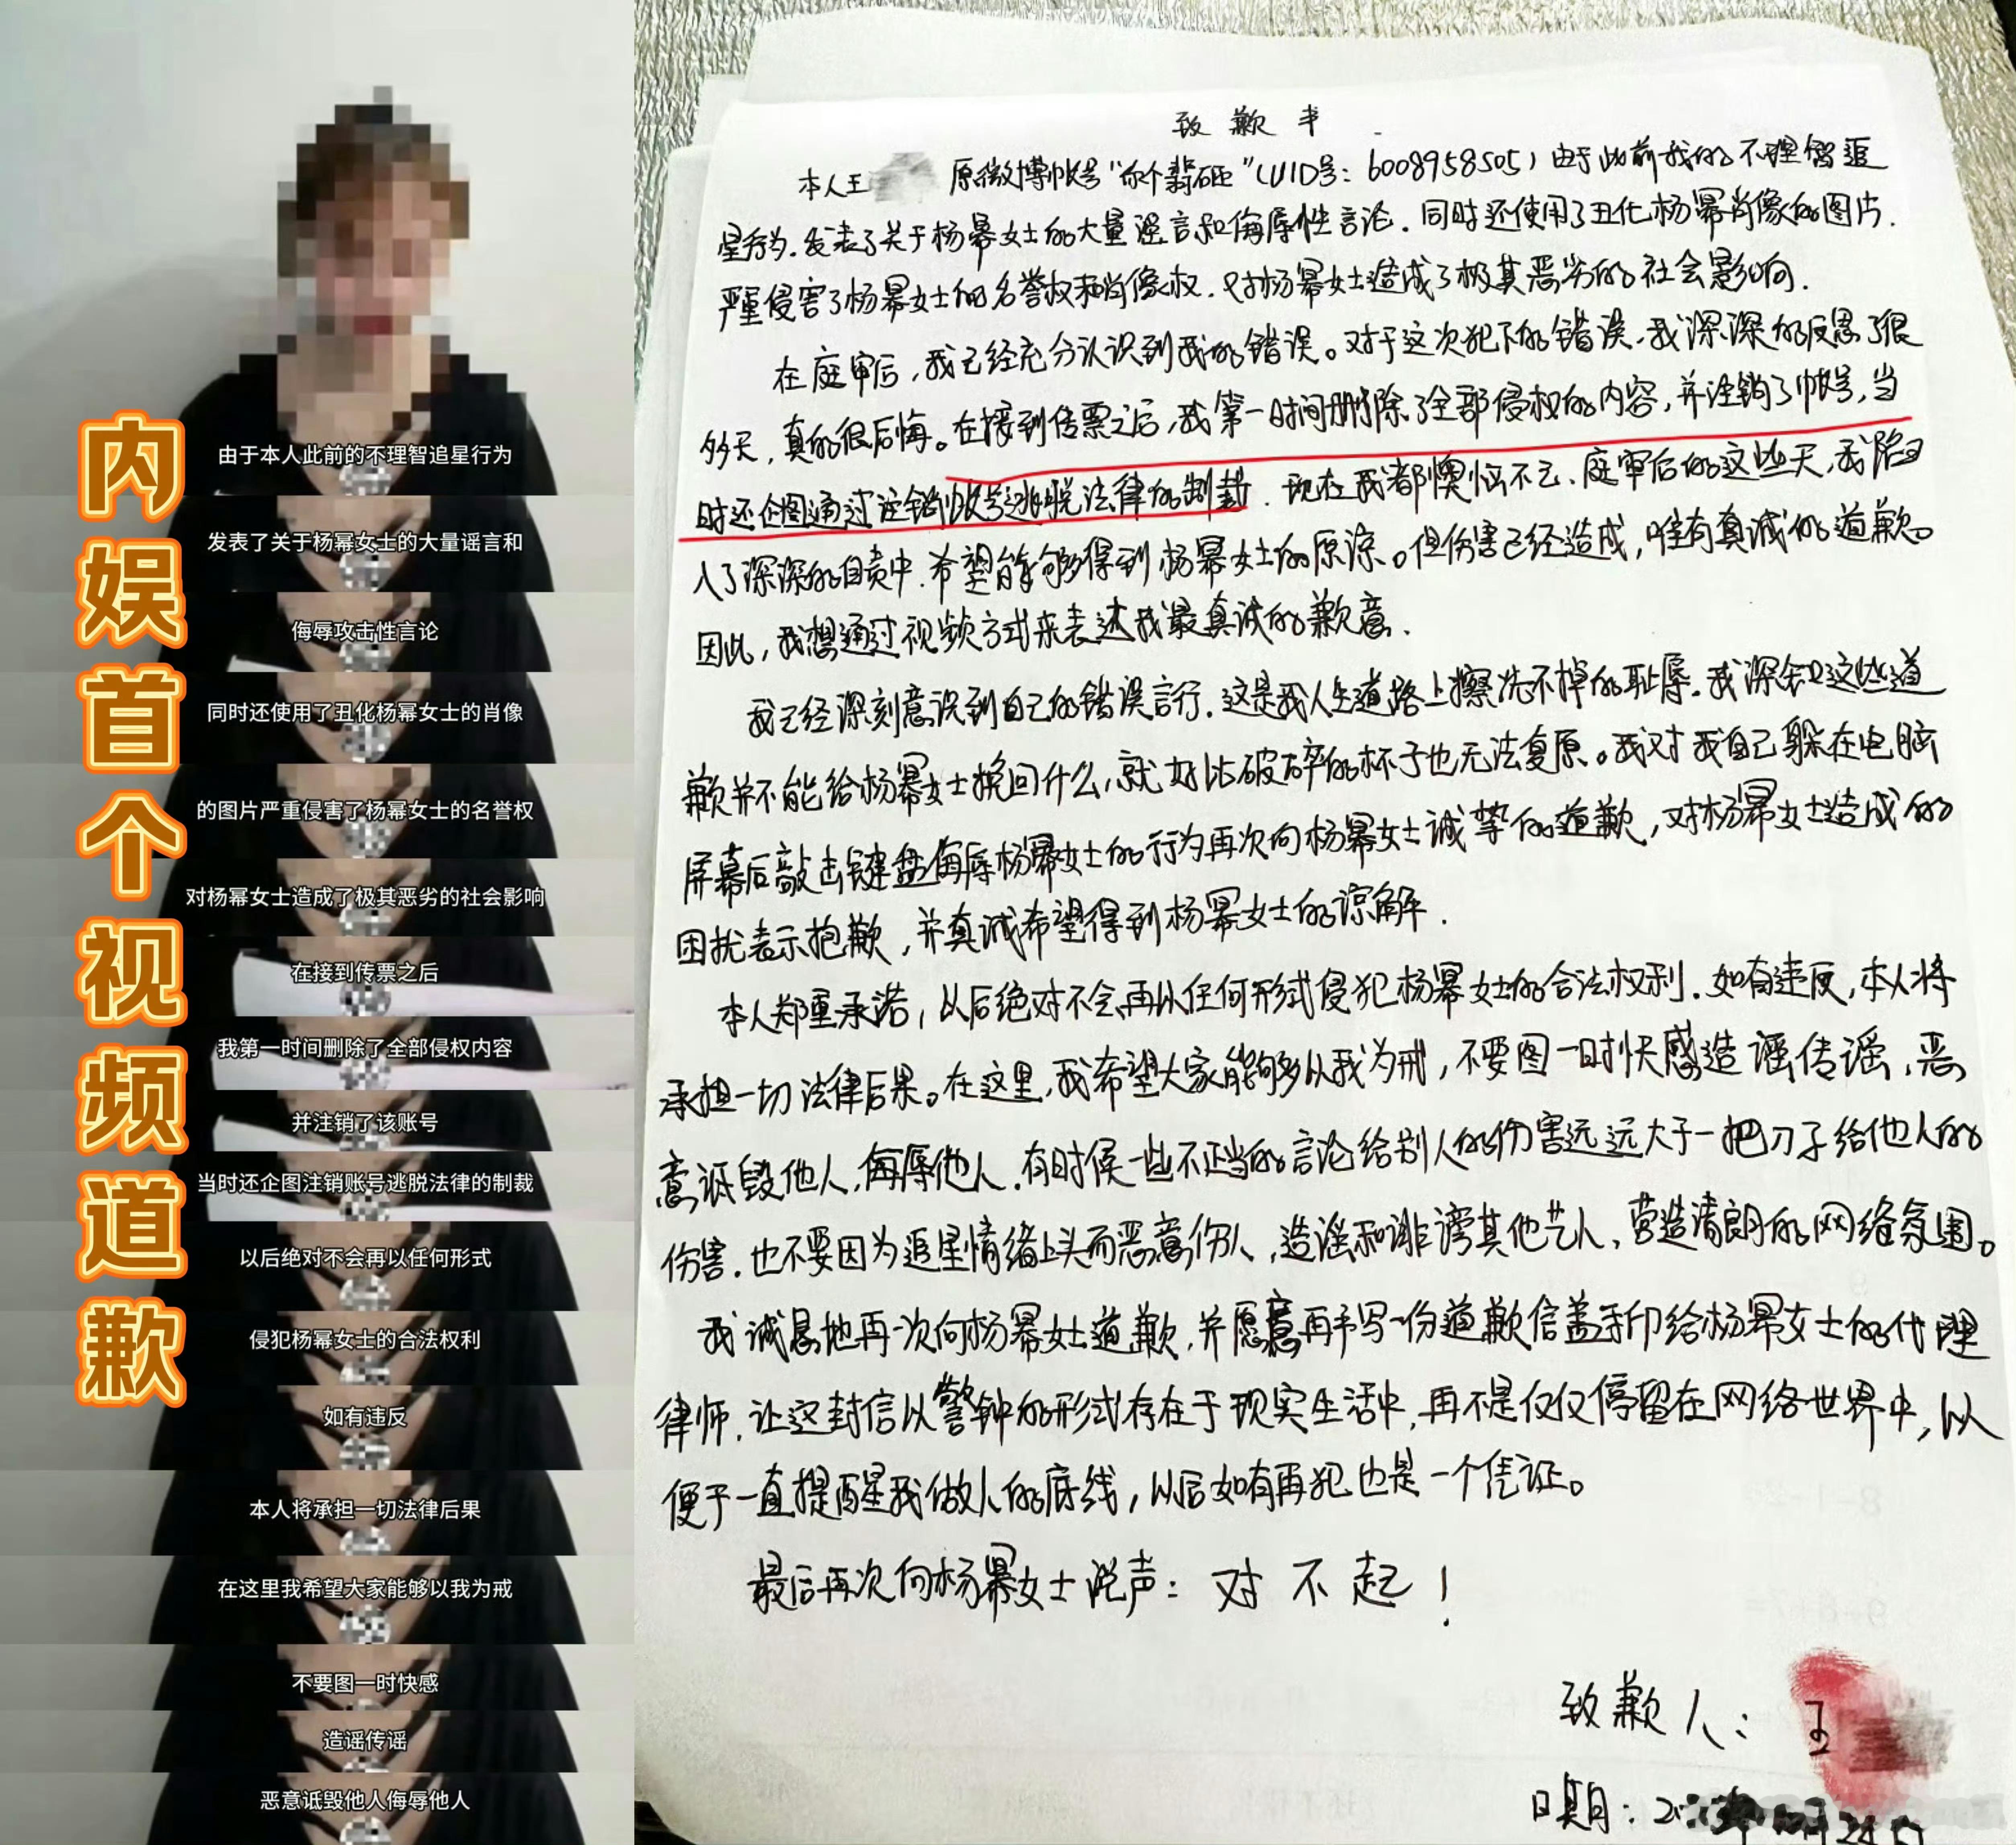 内娱首个视频道歉
由于本人此前的不理智追星行为
发表了关于杨幂女士的大量谣言和
侮辱攻击性言论
同时还使用了丑化杨幂女士的肖像
的图片严重侵害了杨幂女士的名誉权
对杨幂女士造成了极其恶劣的社会影响
在接到传票之后
我第一时间删除了全部侵权内容
并注销了该账号
当时还企图注销账号逃脱法律的制裁
以后绝对不会再以任何形式
侵犯杨幂女士的合法权利
如有违反
本人将承担一切法律后果
在这里我希望大家能够以我为戒
不要图一时快感
造谣传谣
恶意诋毁他人侮辱他人
致歉书
本人王 原微博帐号“你个翡砸”(UID号:6008958505)由于此前我的不理智追
星行为.发表了关于杨幂女士的大量谣言和侮辱性言论.同时还使用了丑化杨幂肖像的图片.
严重侵害了杨幂女士的名誉权和肖像权.对杨幂女士造成了极其恶劣的社会影响.
在庭审后,我已经充分认识到我的错误。对于这次犯下的错误,我深深的反思了很
多天,真的很后悔。在接到传票之后,我第一时间删除了全部侵权的内容,并注销了帐号,当
时还企图通过注销帐号逃脱法律的制裁.现在我都懊恼不已.庭审后的这些天,我陷
入了深深的自责中.希望能够得到杨幂女士的原谅。但伤害已经造成,唯有真诚的道歉。
因此,我想通过视频方式来表达我最真诚的歉意.
我已经深刻意识到自己的错误言行.这是我人生道路上擦洗不掉的耻辱.我深知这些道
歉并不能给杨幂女士挽回什么,就好比破碎的杯子也无法复原。我对我自己躲在电脑
屏幕后敲击键盘侮辱杨幂女士的行为再次向杨幂女士诚挚的道歉,对杨幂女士造成的
困扰表示抱歉,并真诚希望得到杨幂女士的谅解.
本人郑重承诺,以后绝对不会再以任何形式侵犯杨幂女士的合法权利.如有违反,本人将
承担一切法律后果。在这里,我希望大家能够以我为戒,不要图一时快感造谣传谣,恶
意诋毁他人,侮辱他人.有时候一些不正当的言论给别人的伤害远远大于一把刀子给他人的
伤害.也不要因为追星情绪上头而恶意伤人,造谣和诽谤其他艺人,营造清朗的网络氛围。
我诚恳地再一次向杨幂女士道歉,并愿意再手写一份道歉信盖手印给杨幂女士的代理
律师.让这封信以警钟的形式存在于现实生活中,再不是仅仅停留在网络世界中,以
便于一直提醒我做人的底线,以后如有再犯也是一个凭证。
最后再次向杨幂女士说声:对不起!
致歉人:王
日期: